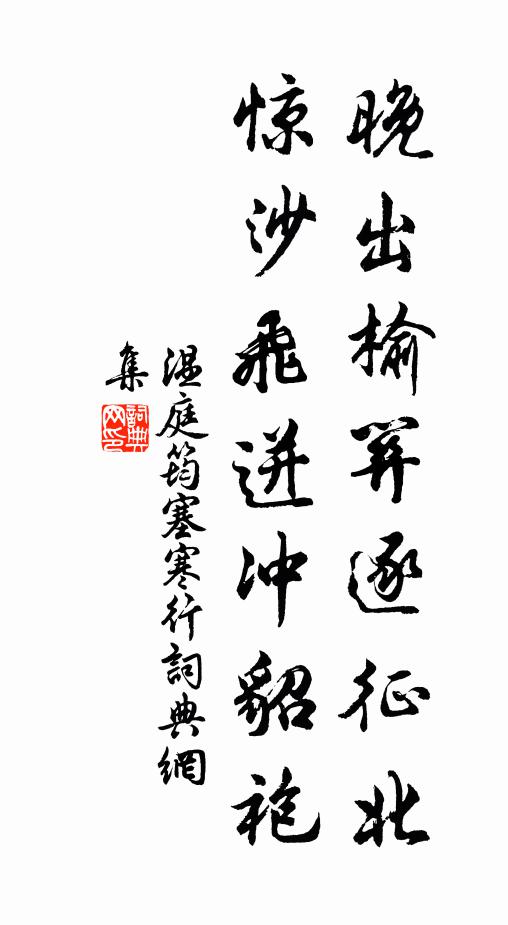 晚出榆关逐征北
惊沙飞迸冲貂袍
温庭筠塞寒行詞典網
集
詞典网印